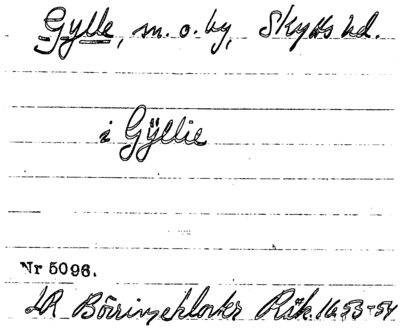 Gylle, sn. o. by, Skytts hd.
i Gÿllie
Nr 5096.
LR Börringekloster Räk. 1653-54